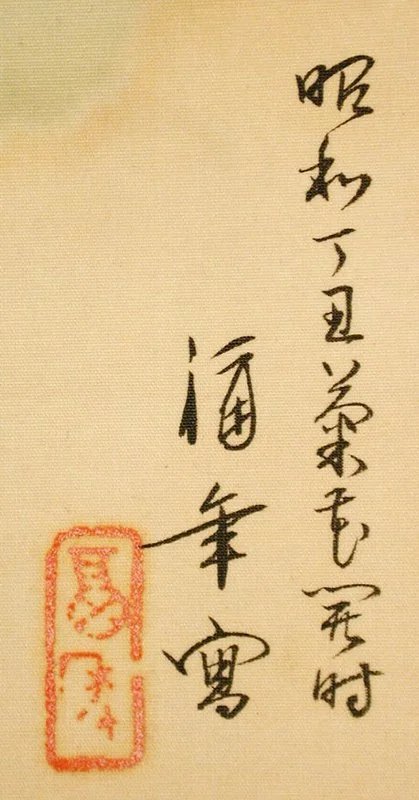 昭和丁丑菊花開時
年寫